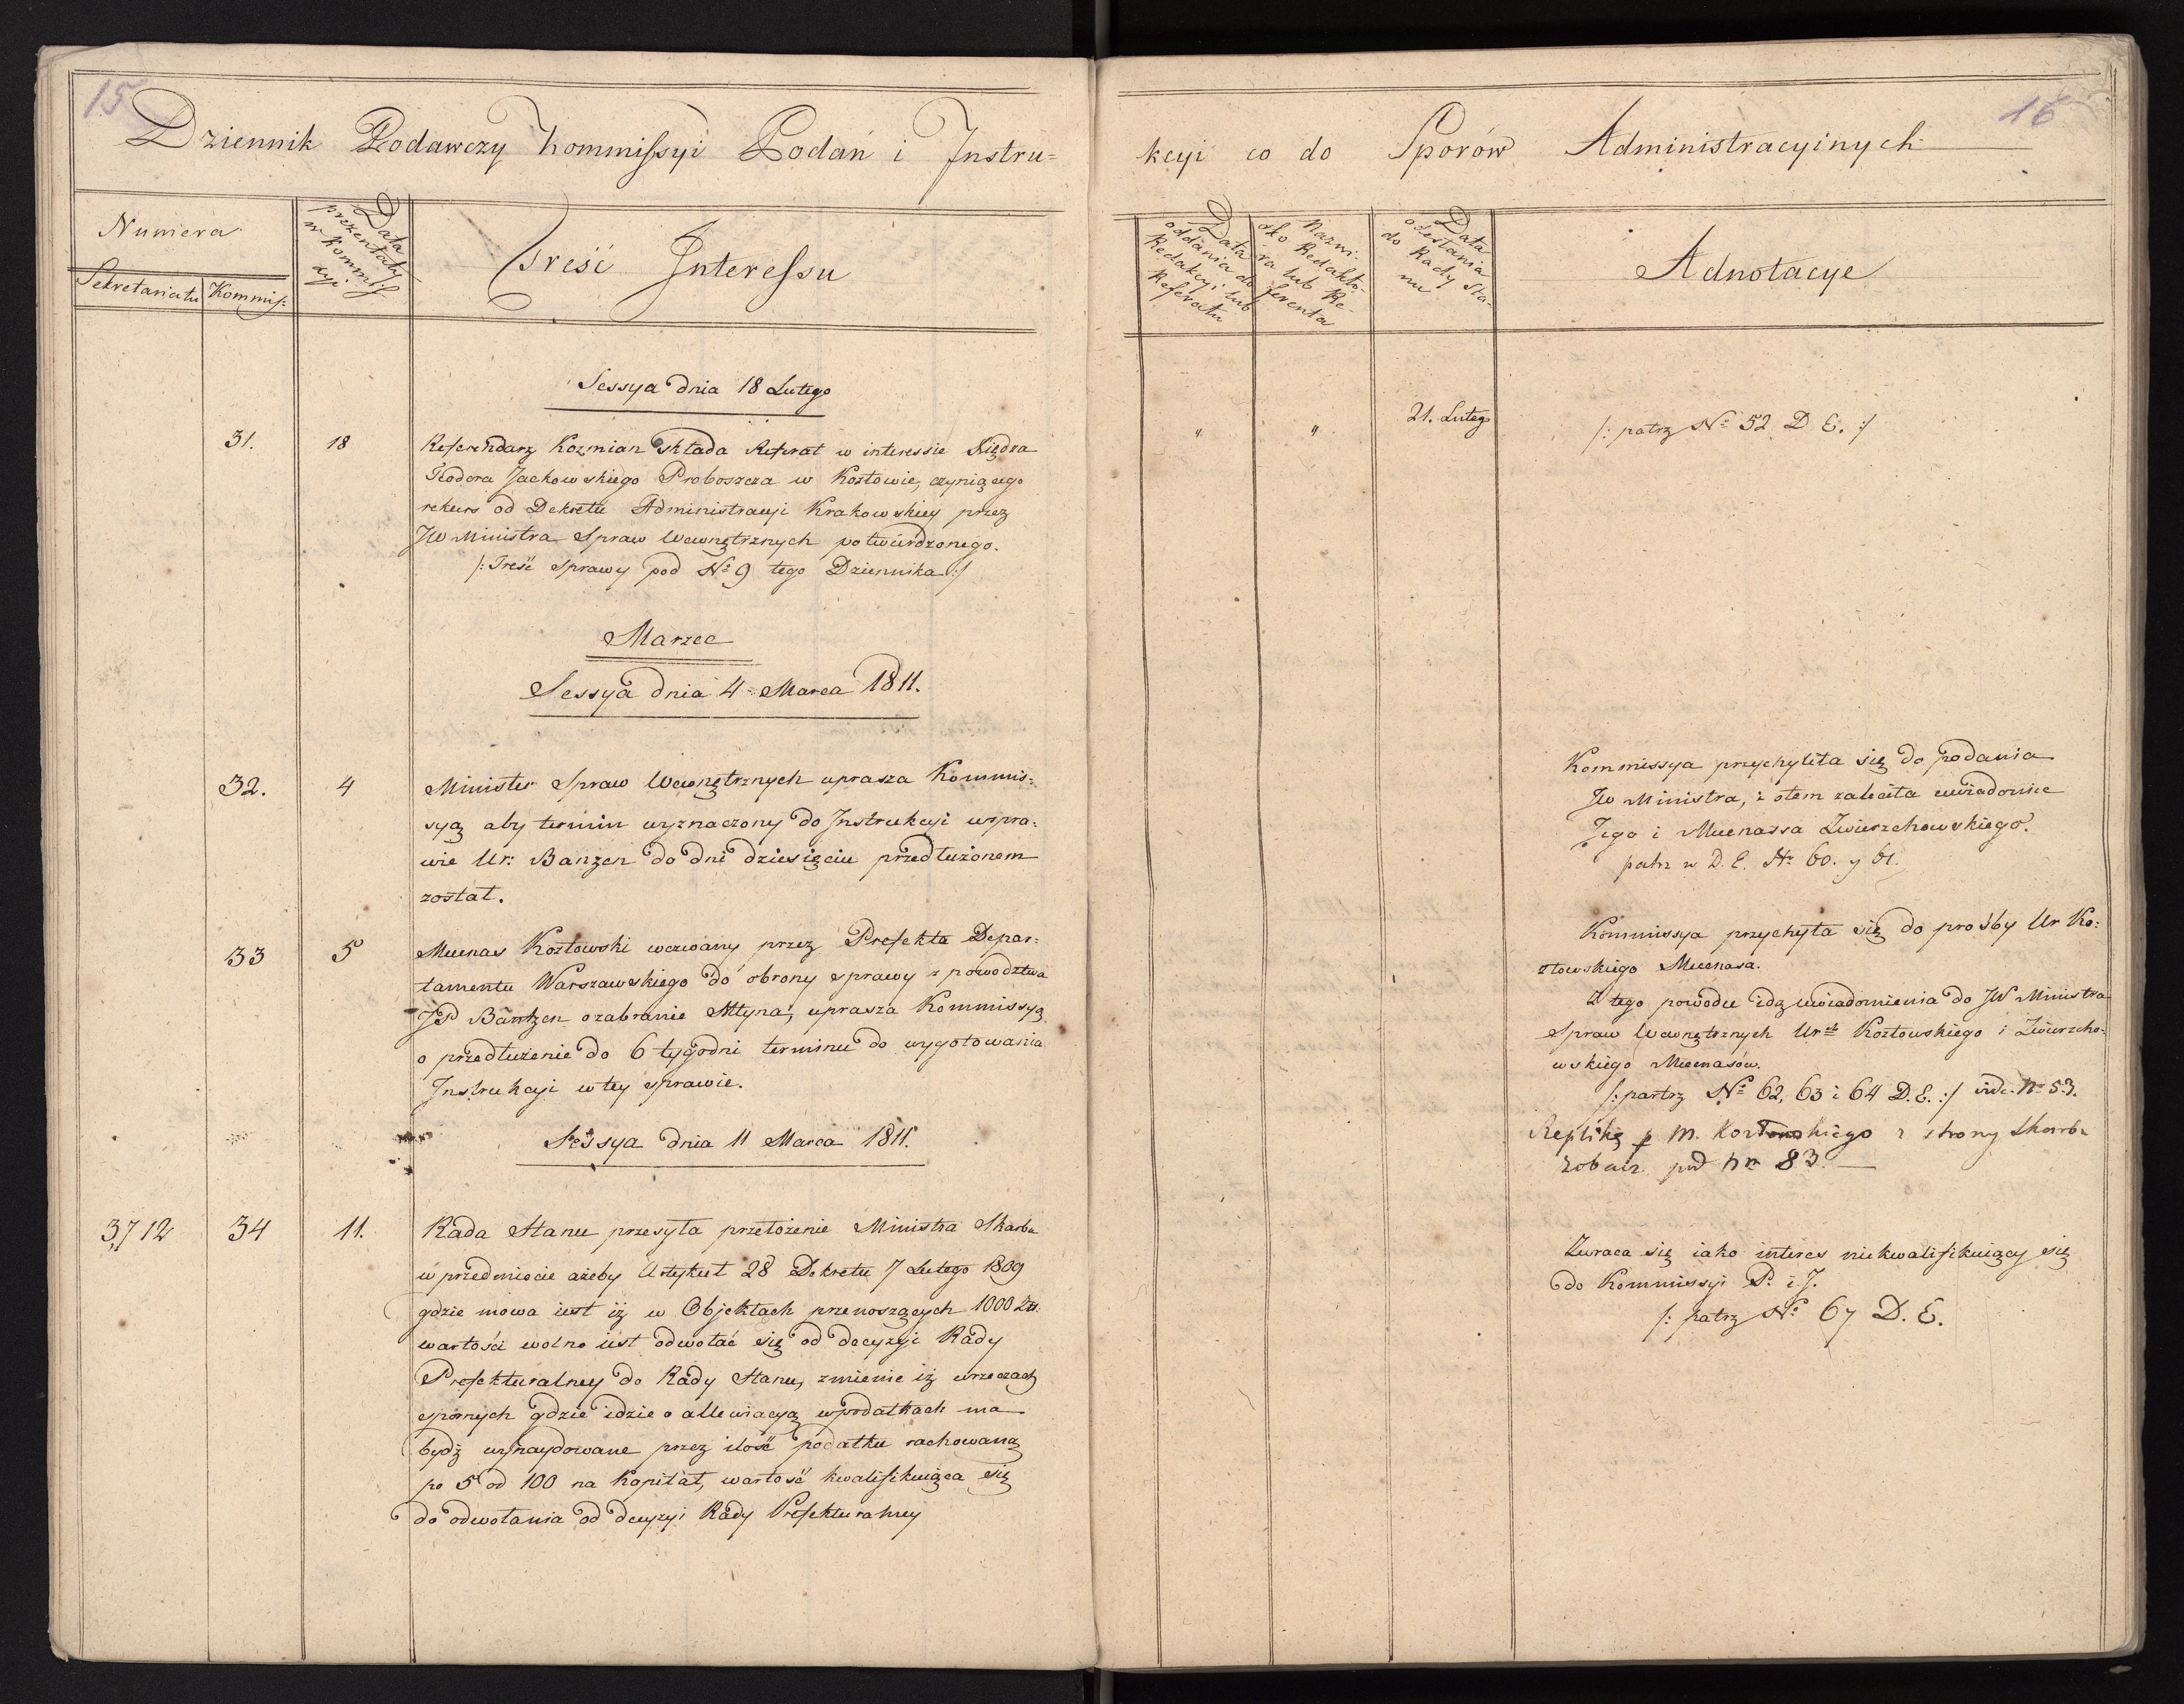 15
Dziennik Podawczy Kommissyi Podań i Instru=
Numera
Sekretariatu
Kommis:
Data
prezentaty
w Kommis
syi
Treść Interessu
Sessya dnia 18 Lutego
31.
18
Referendarz Kozmian składa Referat w interessie Xiędza
Teodora Jackowskiego Proboszcza w Kozłowie, czyniącego
rekurs od Dekretu Administracyi Krakowskiey przez
JW Ministra Spraw Wewnętrznych potwierdzonego.
/: Treść Sprawy pod No 9 tego Dziennika :/
Marzec
Sessya dnia 4 Marca 1811.
32.
4
Minister Spraw Wewnętrznych uprasza Kommis:
syą aby termin wyznaczony do Instrukcyi wspra:
wie Ur: Banzen do dni dziesięciu przedłużonem
został.
33
5
Mecenas Kozłowski wezwany przez Prefekta Depar:
tamentu Warszawskiego do obrony sprawy z powodztwa
JP Bantzen o zabranie Młyna, uprasza Kommissyą
o przedłużenie do 6 tygodni terminu do wygotowania
Instrukcyi w tey sprawie.
Sessya dnia 11 Marca 1811.
3712
34
11.
Rada Stanu przesyła przełożenie Ministra Skarbu
w przedmiocie ażeby Artykuł 28 Dekretu 7 Lutego 1809
gdzie mowa iest iż w Objektach przenoszących 1000 Zł:
wartości wolno iest odwołać się od decyzyi Rady
Prefekturalney do Rady Stanu, zmienić iż w rzeczach
spornych gdzie idzie o allewiacyą w podatkach ma
bydź wynaydowane przez ilość podatku rachowaną
po 5 od 100 na Kapitał, wartość kwalifikuiąca się
do odwołania od decyzyi Rady Prefekturalney
16
kcyi co do Sporów Administracyinych
Data
oddania do
Redakcyi lub
Referatu
Nazwi-
sko Redakto-
ra lub Re-
ferenta
Data
odesłania
do Rady Sta-
nu
Adnotacye
"
"
21. Lutego
/: patrz No 52 D E. :/
Kommissya przychyliła się do podania
JW Ministra, i otem zaleciła uwiadomić
Jego i Mecenassa Zwierzchowskiego.
patrz w D. E. Nr 60. y 61.
Kommissya przychyla się do prośby Ur Ko:
złowskiego Mecenasa.
Z tego powodu idą uwiadomienia do JW Ministra
Spraw Wewnętrznych Ur Kozłowskiego i Zwierzcho-
wskiego Mecenasów.
/: partrz No 62, 63 i 64 D. E. :/ vide No 53.
Replikę p M. Kozłowskiego z strony Skarbu
zobacz pod Nr 83.
Zwraca się iako interes niekwalifikuiący się
do Kommissyi P. i J.
/: patrz No 67 D. E.